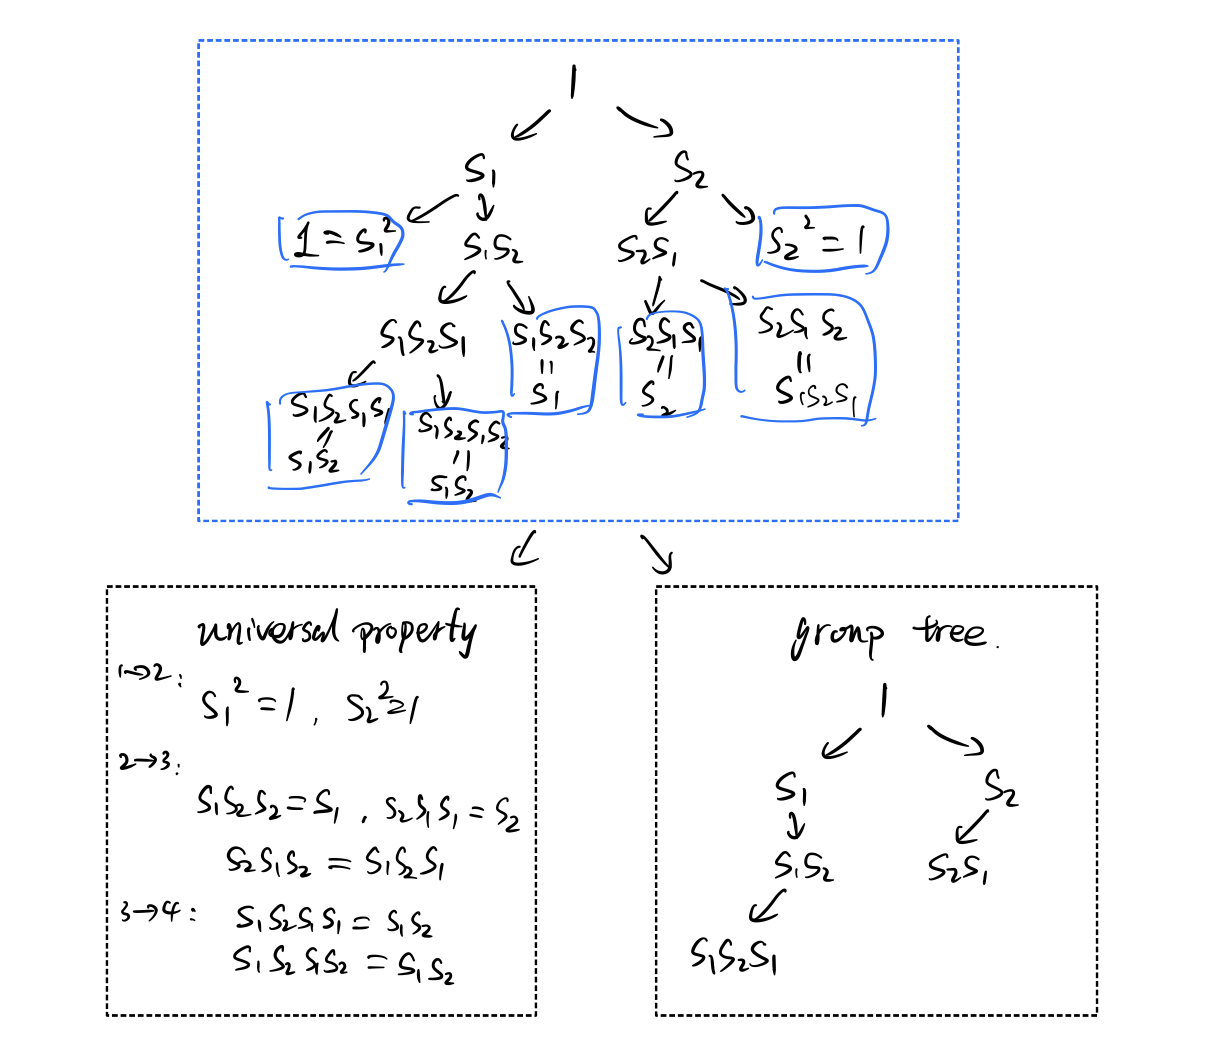 1
S₁ S₂
1 = S₁² S₁S₂ S₂S₁ S₂² = 1
S₁S₂S₁ S₁S₂S₂ S₂S₁S₁ S₂S₁S₂
= = =
S₁ S₂ S₁S₂S₁
S₁S₂S₁S₁ S₁S₂S₁S₂
= =
S₁S₂ S₁S₂
universal property
1→2:
S₁² = 1, S₂² = 1
2→3:
S₁S₂S₂ = S₁, S₂S₁S₁ = S₂
S₂S₁S₂ = S₁S₂S₁
3→4: S₁S₂S₁S₁ = S₁S₂
S₁S₂S₁S₂ = S₁S₂
group tree.
1
S₁ S₂
S₁S₂ S₂S₁
S₁S₂S₁